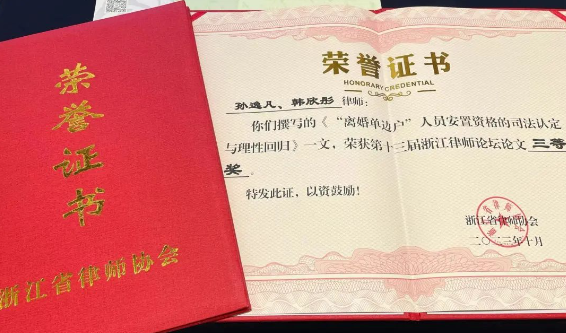 荣誉证书
浙江省律师协会
荣誉证书
HONORARY CREDENTIAL
孙逸凡、韩欣彤 律师:
你们撰写的《“离婚单边户”人员安置资格的司法认定
与理性回归》一文,荣获第十三届浙江律师论坛论文 三等
奖。
特发此证,以资鼓励!
浙江省律师协会
二〇二三年十月